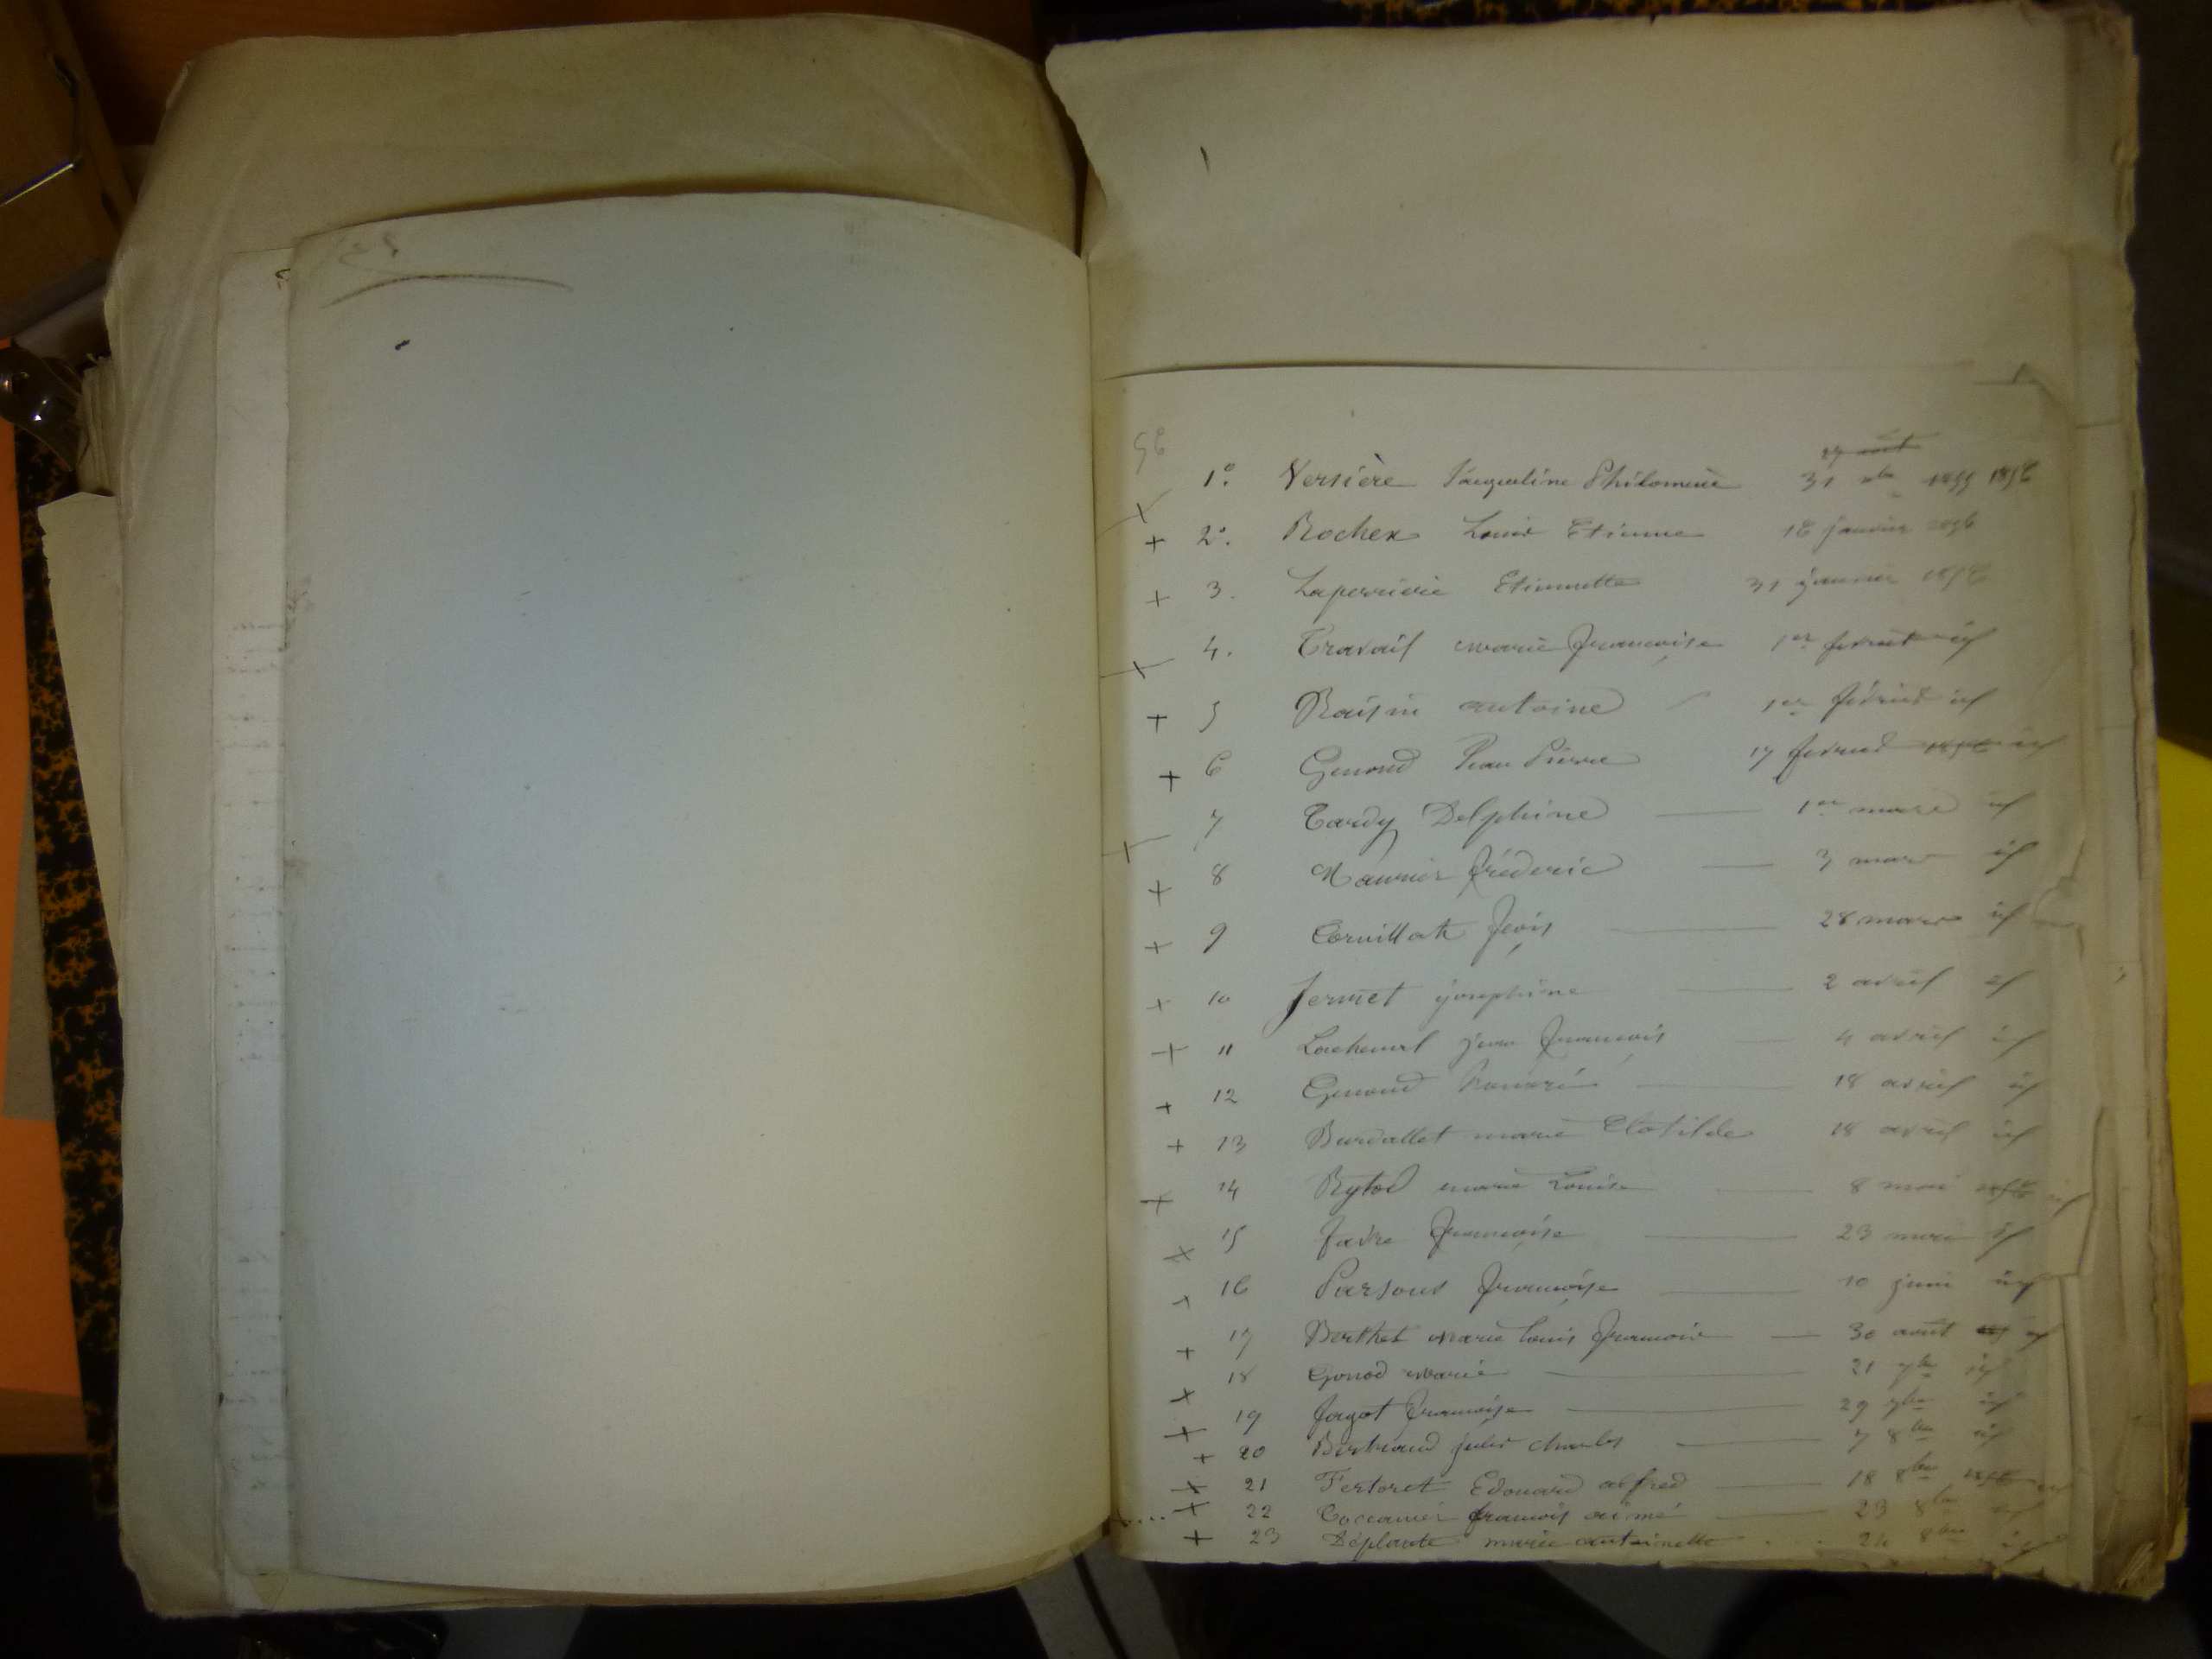 56
1º. Versière Jacqueline Philomène 31 xbre 1855 1856
+ 2º. Rochex Louis Etienne 16 janvier 1856
+ 3. Laperrière Etiennette 31 janvier 1856
+ 4. Travail marie françoise 1er février id
+ 5 Raisin antoine 1er février id
+ 6 Genoud Jean Pierre 17 février id
+ 7 Tardy Delphine 1er mars id
+ 8 frédéric 3 mars id
+ 9 28 mars id
+ 10 josephine 2 avril id
+ 11 jean françois 4 avril id
+ 12 Genoud 18 avril id
+ 13 Burdallet marie Clotilde 18 avril id
+ 14 marie Louise 8 mai id
+ 15 favre françoise 23 mai id
+ 16 françoise 10 juin id
+ 17 Berthet marie Louis françois 30 août id
+ 18 Gonod marie 21 7bre id
+ 19 Jagot françoise 29 7bre id
+ 20 Bertrand jules charles 7 8bre id
+ 21 Fertoret Edouard alfred 18 8bre id
+ 22 Coccanier françois aimé 23 8bre id
+ 23 Déplante marie antoinette 24 8bre id